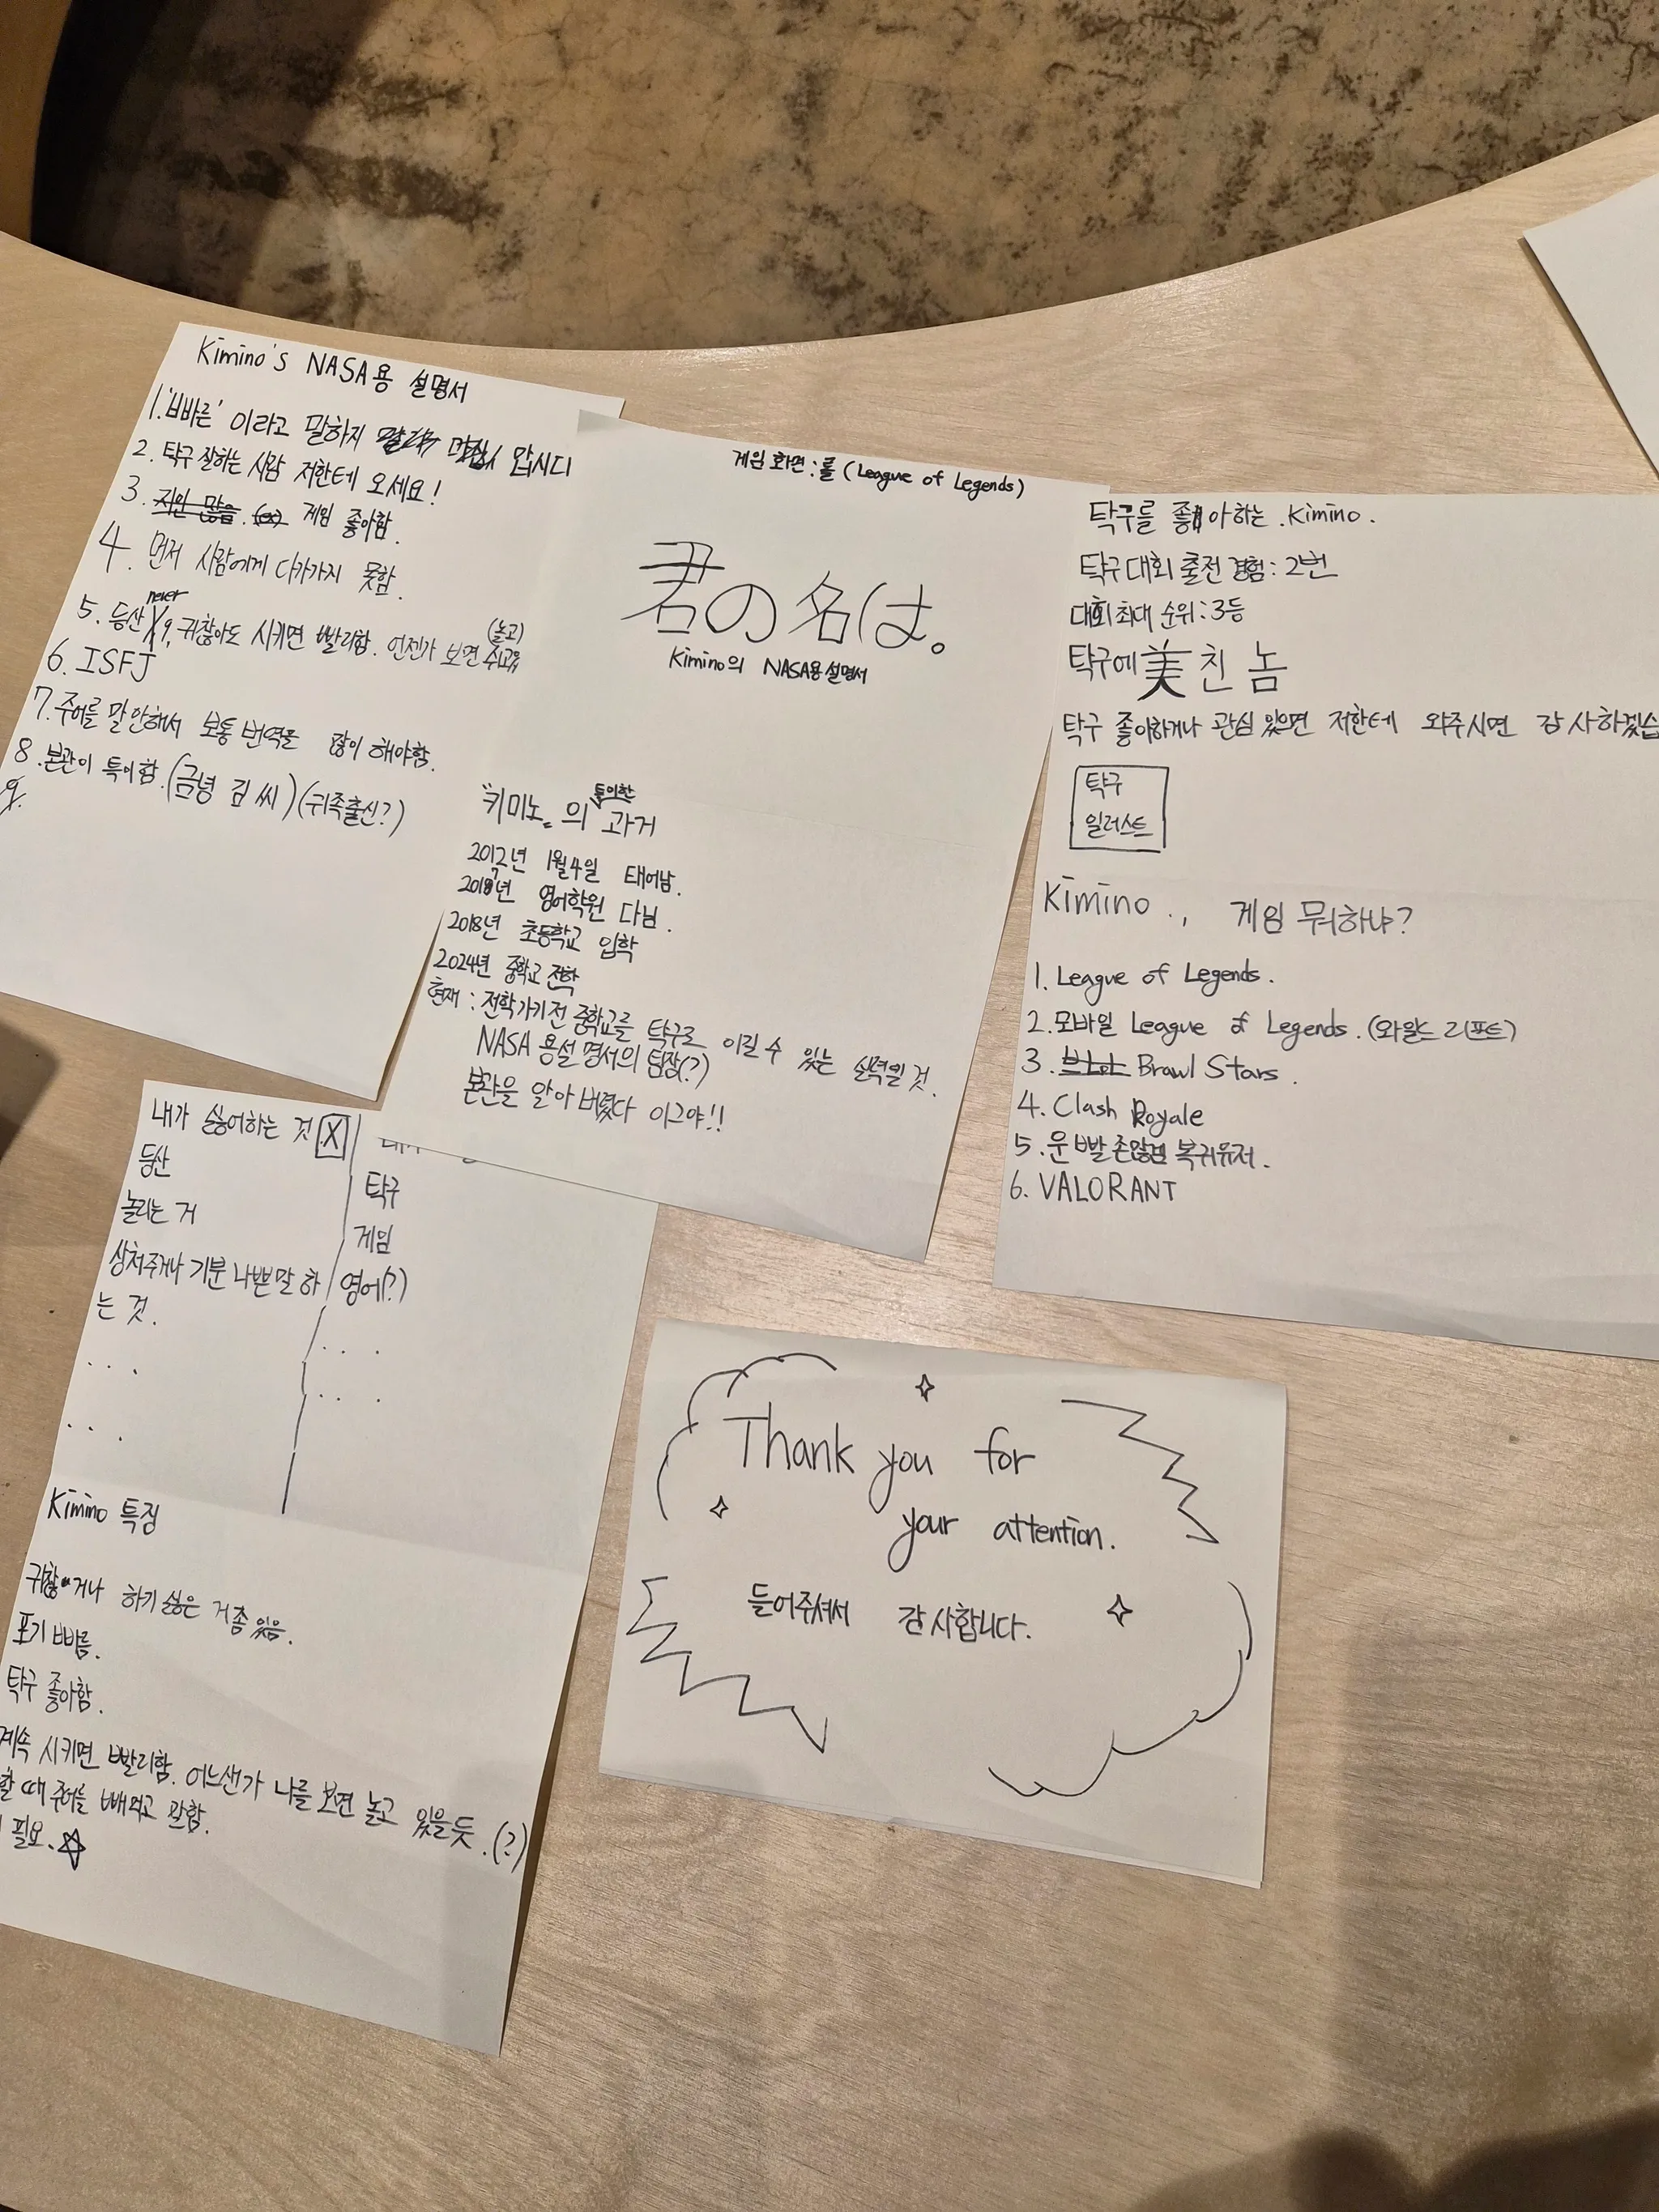 Kimino's NASA용 설명서
1. '빠른' 이라고 말하지 맙시다
2. 탁구 잘하는 사람 저한테 오세요!
3. 지인 많음. 게임 좋아함.
4. 먼저 사람에게 다가가지 못함.
never
5. 등산 X, 귀찮아도 시키면 빨리함. 언젠가 보면
(놀고)
6. ISFJ
7. 주어를 말 안해서 보통 번역을 많이 해야함.
8. 본관이 특이함. (금녕 김씨) (귀족출신?)
9.
게임 화면 : 롤 (League of Legends)
君の名は。
Kimino의 NASA용 설명서
"키미노" 의 특이한 과거
2012년 1월 4일 태어남.
영어학원 다님.
2018년 초등학교 입학
2024년 중학교 전학
현재 : 전학가기 전 중학교를 탁구로 이길 수 있는 실력일 것.
NASA 용설명서의 팀장(?)
본관을 알아버렸다 이그야!!
탁구를 좋아하는 Kimino.
탁구대회 출전 경험 : 2번
대회 최대 순위 : 3등
탁구에 美친 놈
탁구 좋아하거나 관심 있으면 저한테 와주시면 감사하겠습
탁구
일러스트
Kimino., 게임 뭐하냐?
1. League of Legends.
2. 모바일 League of Legends. (와일드 리프트)
3. Brawl Stars.
4. Clash Royale
5. 운빨존많겜 복귀유저.
6. VALORANT
내가 싫어하는 것 X
등산
놀리는 거
상처주거나 기분 나쁜말 하
는 것.
...
...
탁구
게임
영어(?)
...
...
Kimino 특징
귀찮거나 하기 싫은 거 좀 있음.
포기 빠름.
탁구 좋아함.
계속 시키면 빨리함. 어느샌가 나를 보면 놀고 있을듯.(?)
할 때 주어를 빼먹고 말함.
필요.☆
Thank you for
your attention.
들어주셔서 감사합니다.